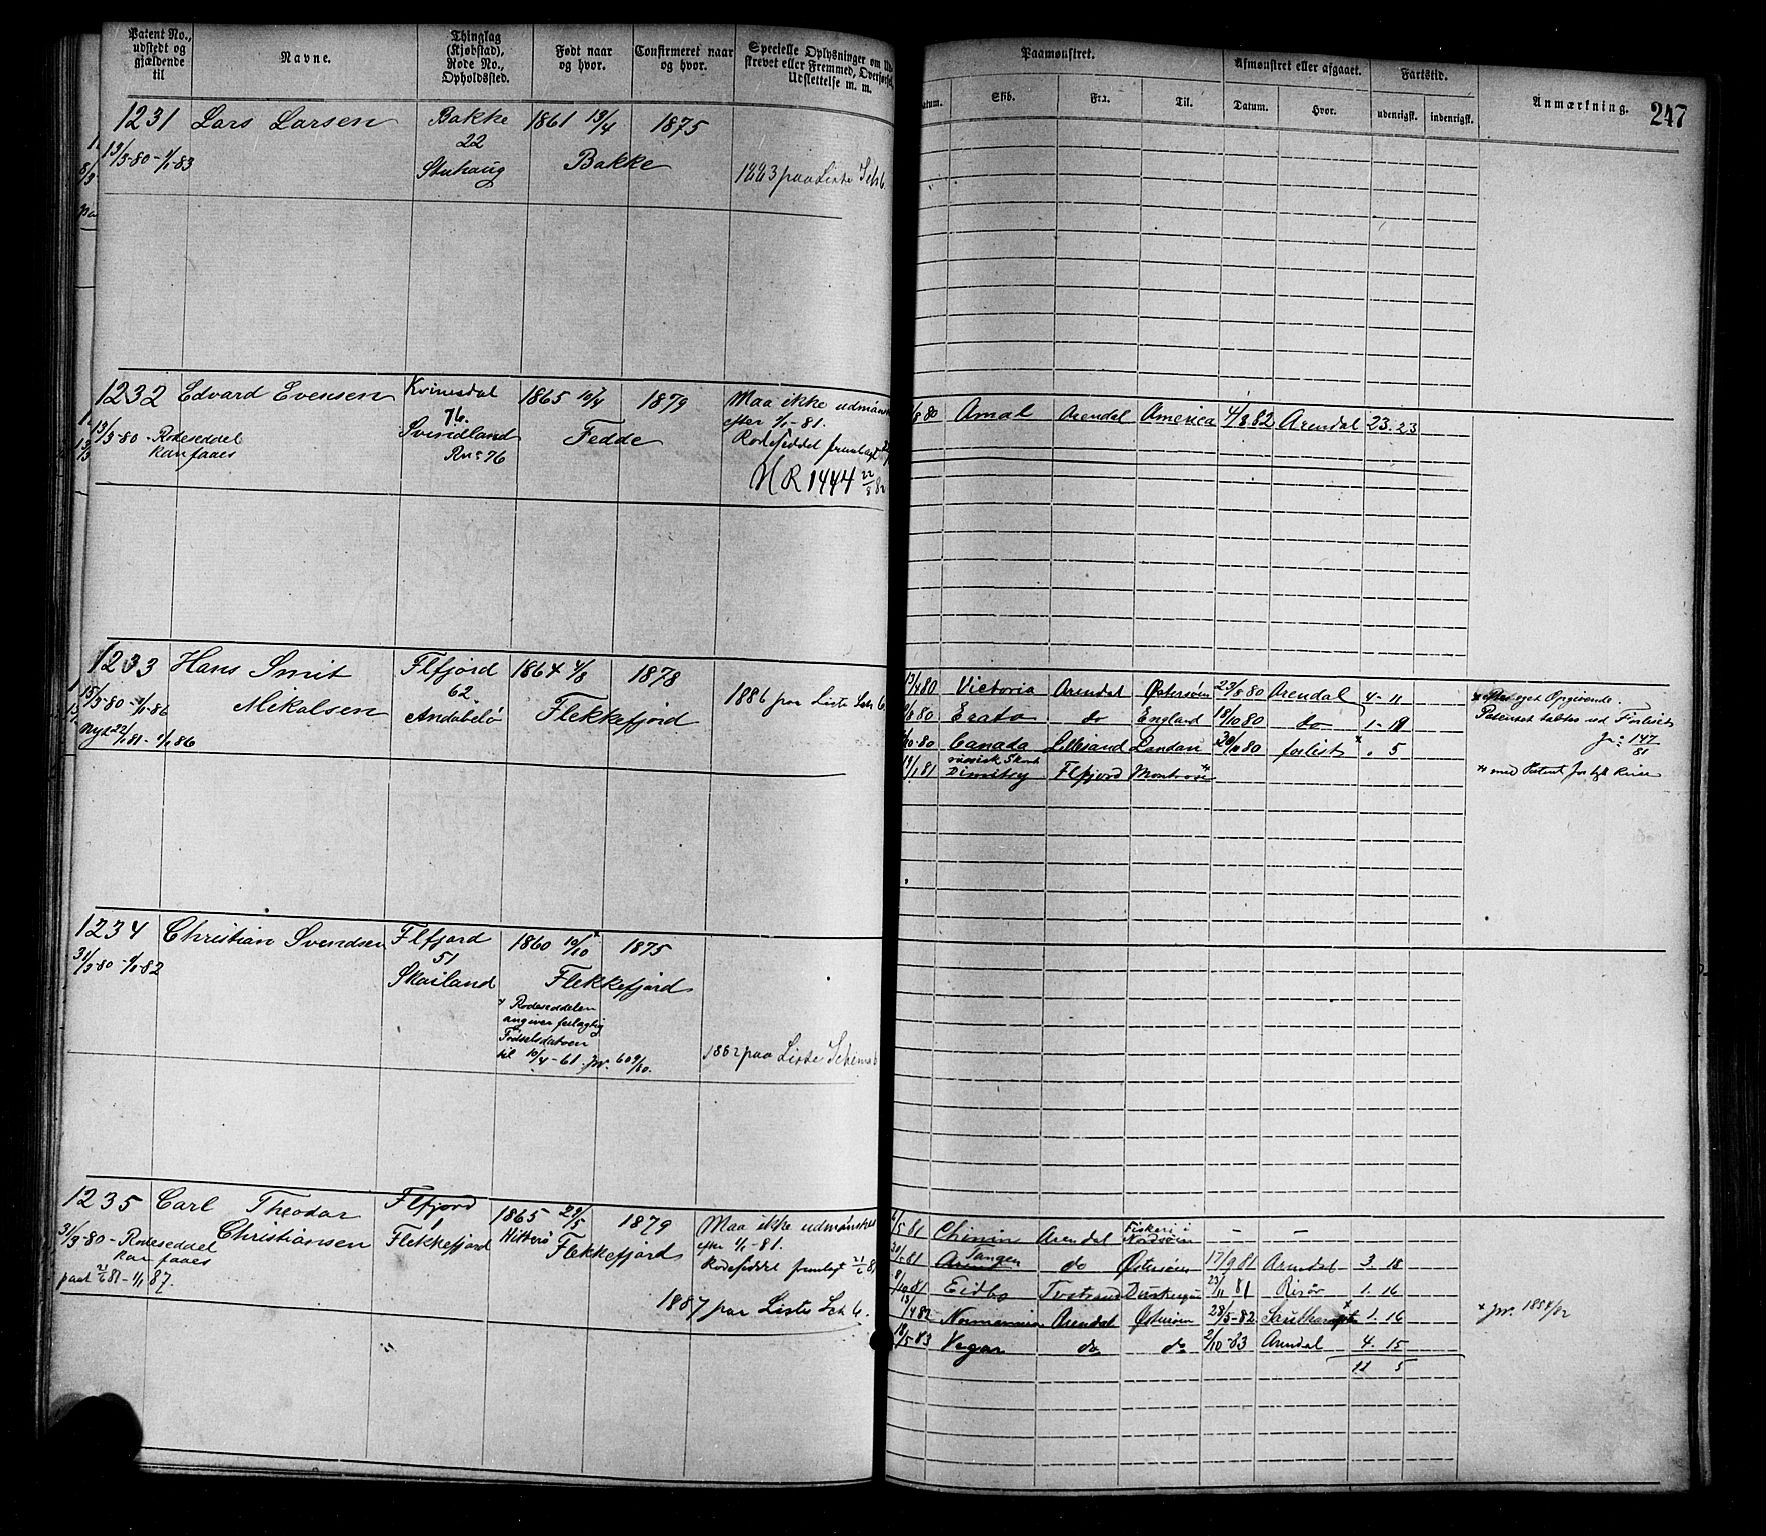 Patent No., udstedt og gjældende til
Navne.
Thinglag (Kjøbstad), Rode No., Opholdssted.
Født naar og hvor.
Confirmeret naar og hvor.
Specielle Oplysninger om Ud
strevet eller Fremmed, Overførsel,
Udslettelse m. m.
Paamønstret.
Datum.
Skib.
Fra.
Til.
Afmønstret eller afgaaet.
Datum.
Hvor.
Fartstid.
udenrigsk.
indenrigsk.
Anmærkning.
247
1231 Lars Larsen Bakke 1861 13/4 1875
13/3-80-1/1-83 22
Bakke
1883 paa Liste Sch 6
1232 Edvard Evensen Kvinesdal 1865 10/4 1879 Maa ikke udmønst
13/3-80-Rodeseddel 76. efter 1/1-81.
kan faaes Svindland Fedde Rodeseddel fremlagt
Rn: 76
HR 1444 22/8 82
/8 80 Amal Arendal America 4/8 82 Arendal 23. 23
1233 Hans Smit Flfjord 1864 4/8 1878
15/3-80-1/1-86 Mikalsen 62
Andabelø Flekkefjord
Nyt 22/1 81-1/1 86
1886 paa Liste Sch 6
13/4 80 Victoria Arendal Østersøen 29/8 80 Arendal 4-11
80 Erato do England 18/10 80 do 1-18
10-80 Canada Lillesand London 20/11 80 forlist x " 5
russisk Skont
19/1 81 Dimitry Flfjord Montrose
x Efter eget Opgivende.
Patentet tabtes ved Forliset
Jr: 147/81
med Patent for Reise
1234 Christian Svendsen Flfjord 1860 10/10 x 1875
31/3-80-1/1-82 51
Skailand Flekkefjord
x Rodeseddelen
angiver feilagtig
Fødselsdatoen
til 10/4-61. Jvr. 609/80.
1882 paa Liste Schema 6
1235 Carl Theodor Flfjord 1865 29/5 1879 Maa ikke udmønstres
Christiansen 1 Hitterø efter 1/1-81.
31/3-80-Rodeseddel Flekkefjord Flekkefjord Rodeseddel fremlagt 21/6 81
kan faaes
paat 21/6 81-1/1 87.
1887 paa Liste Sch 6.
/5 81 Chinin Arendal Fiskeri i Nordsøen - -
20/6 81 Tangen do Østersøen 17/9 81 Arendal 3. 18
8/10 81 Eidbo Tvestrand 23/11 81 Risør 1. 16
13/4 82 Arendal Østersøen 28/5-82 x 1. 16
x Jvr. 1858/82
18/5-83 Vegar do do 2/10-83 Arendal 4. 15
11 5